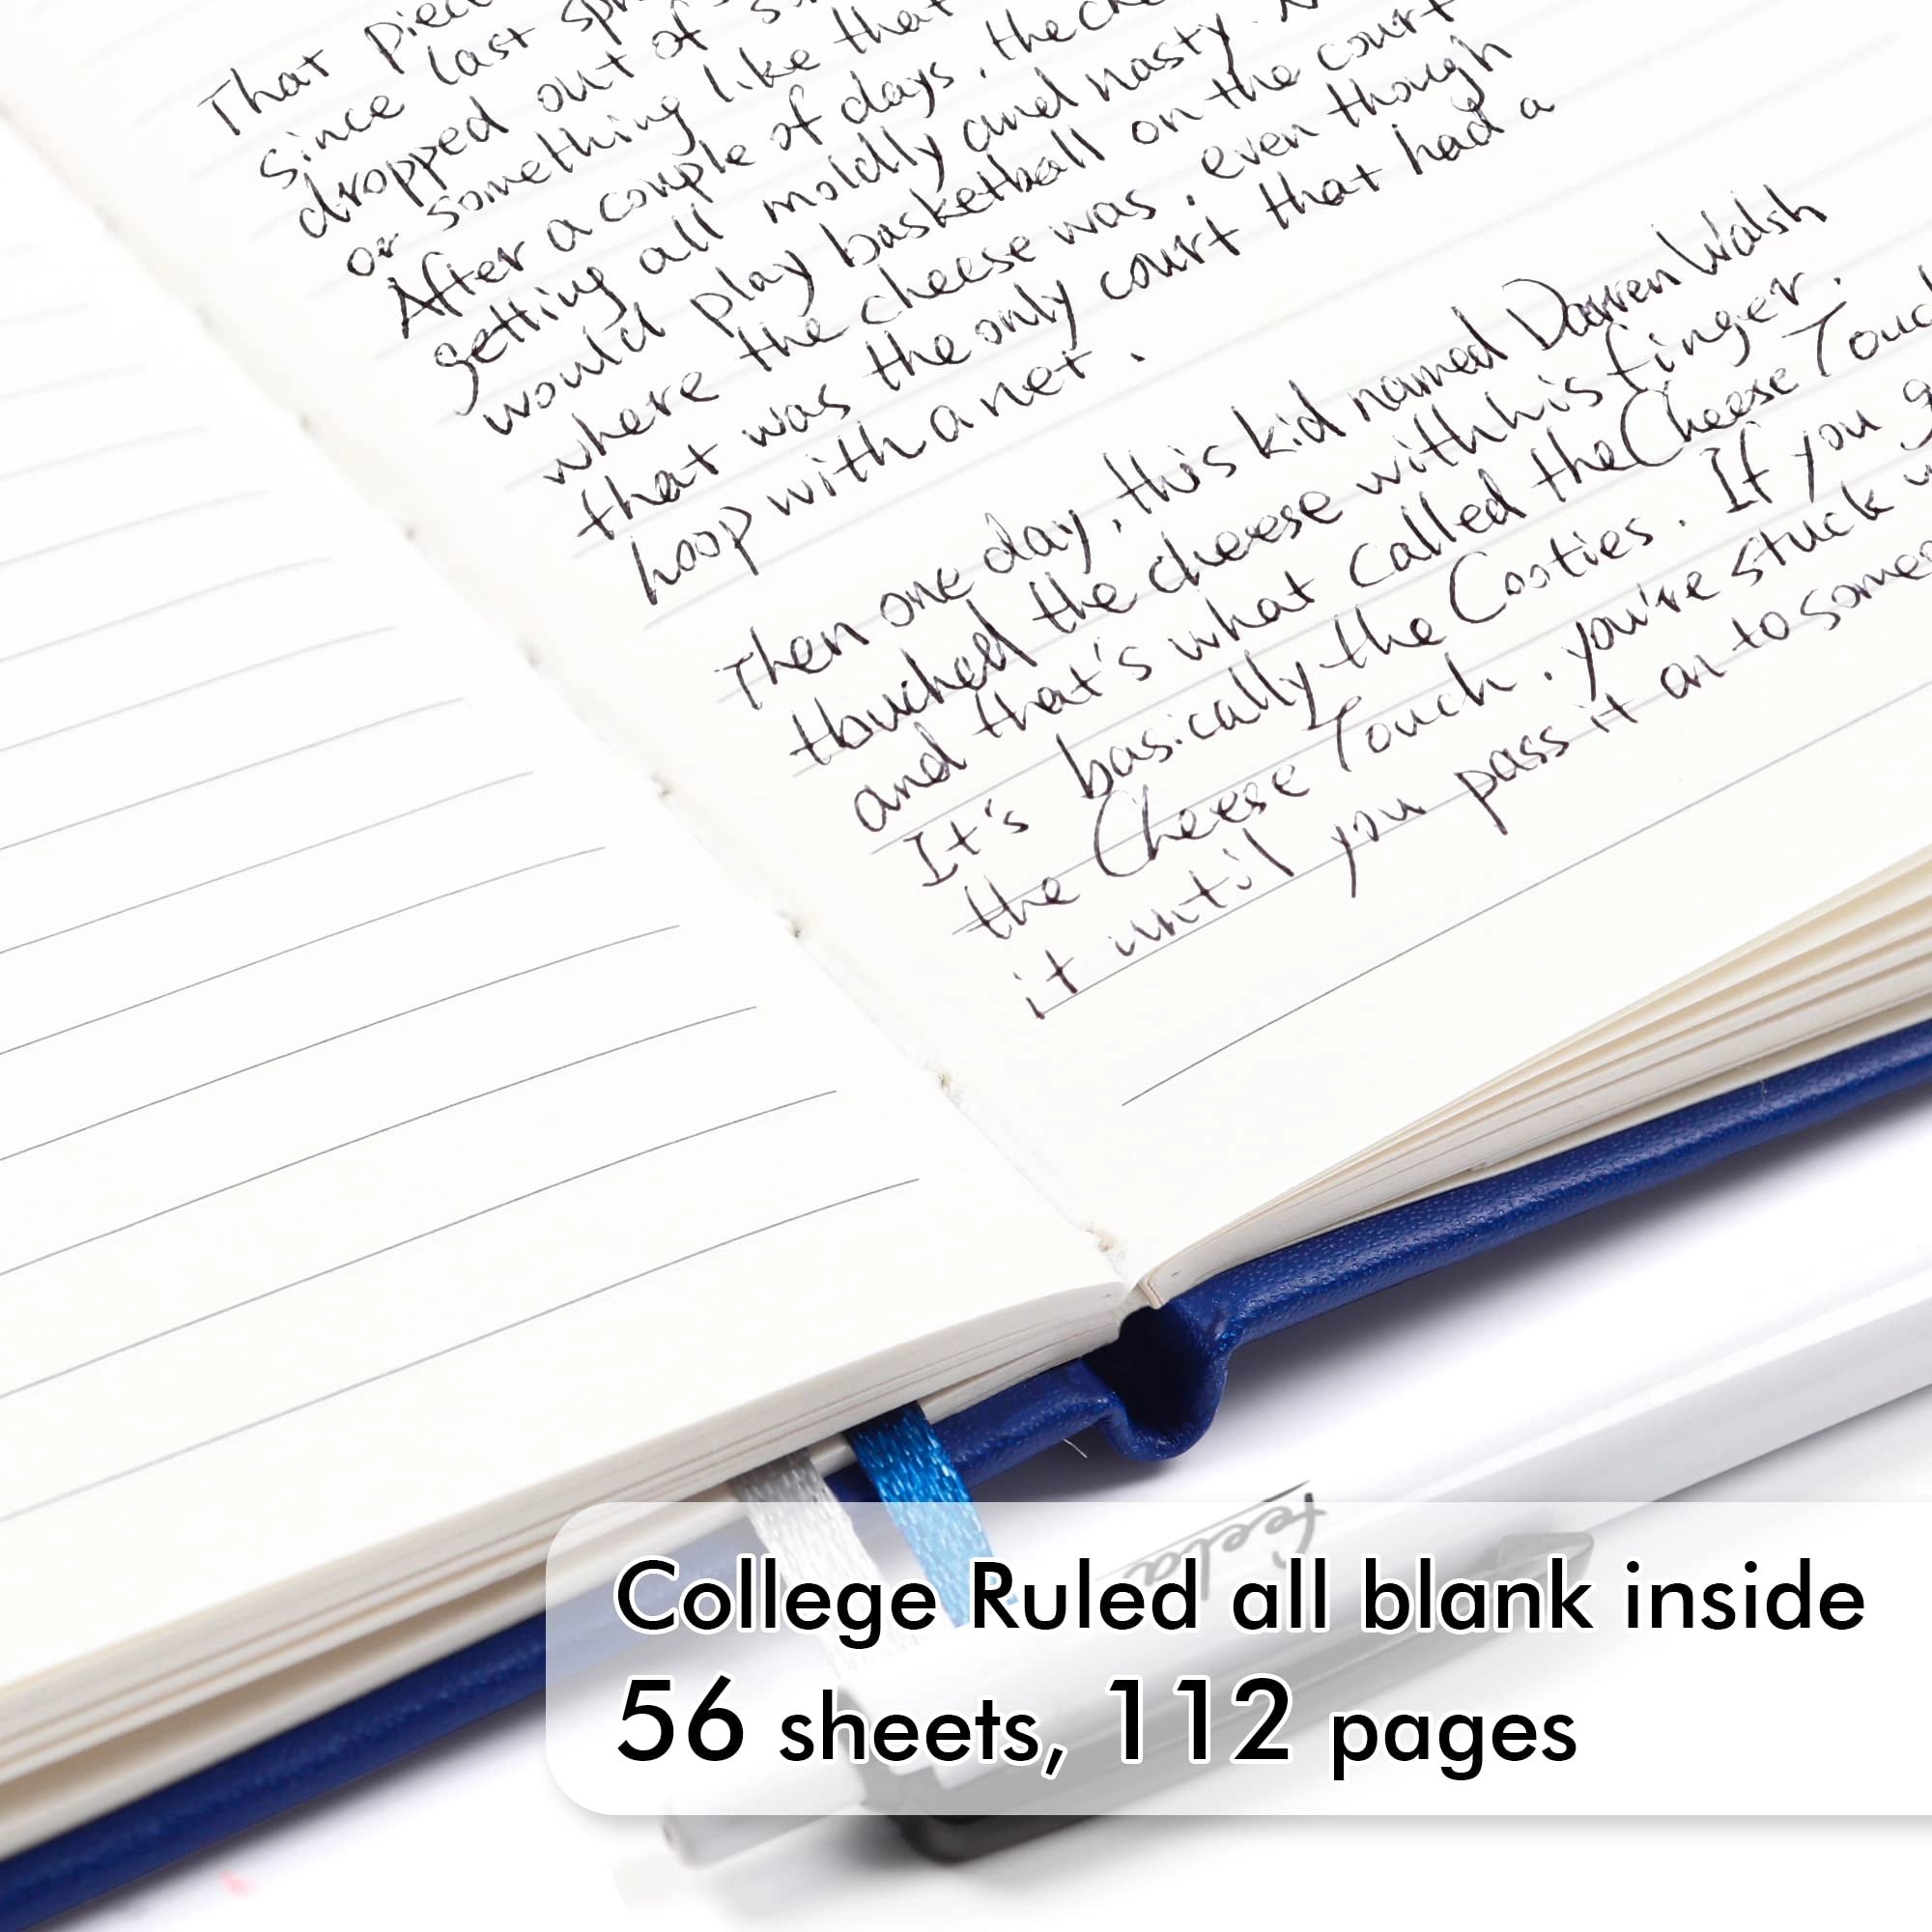 That
since last
dropped out of
or something like that
After a couple of days, the
getting all moldly and nasty.
would play basketball on the court
where the cheese was, even though
that was the only court that had a
hoop with a net.
Then one day, this kid named Darren Walsh
touched the cheese with his finger.
and that's what called the Cheese
It's basically the Cooties. If you
the Cheese Touch, you're stuck
it until you pass it on to
feela
College Ruled all blank inside
56 sheets, 112 pages